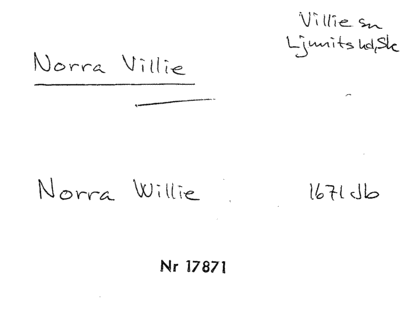 Villie sn
Ljunits hd, Sk
Norra Villie
Norra Willie 1671 Jb
Nr 17871